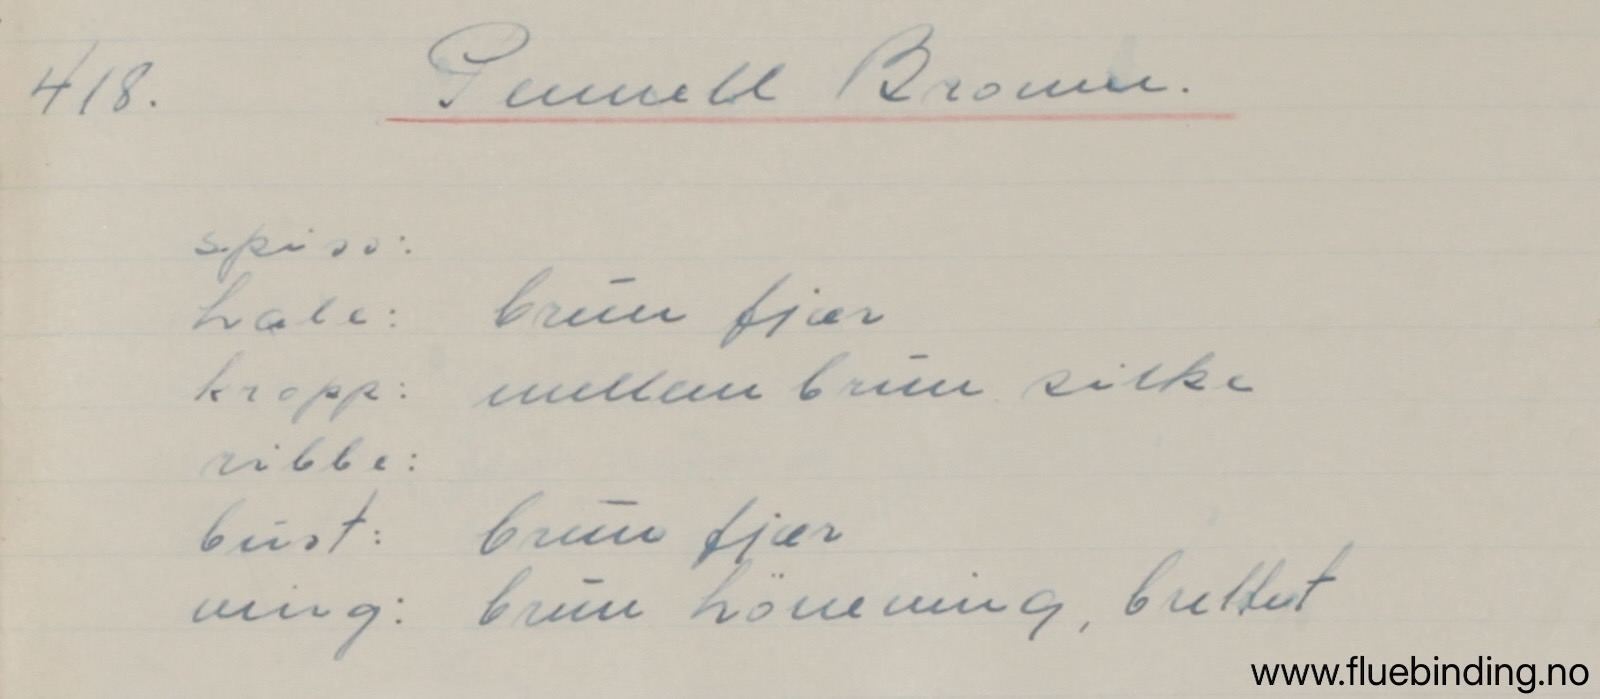 418. Pennell Brown.
spiss:
hale: brun fjær
kropp: mellem brun silke
ribbe:
bust: brun fjær
ving: brun höneving, brettet
www.fluebinding.no